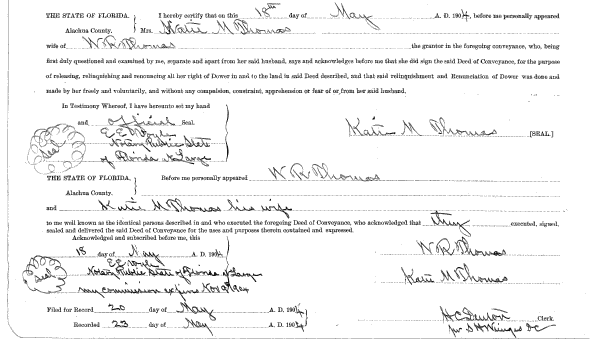 THE STATE OF FLORIDA. I hereby certify that on this 18th day of May A. D. 1904, before me personally appeared
Alachua County. Mrs. Katie M Thomas
wife of W. R Thomas the grantor in the foregoing conveyance, who, being
first duly questioned and examined by me, separate and apart from her said husband, says and acknowledges before me that she did sign the said Deed of Conveyance, for the purpose
of releasing, relinquishing and renouncing all her right of Dower in and to the land in said Deed described, and that said relinquishment and Renunciation of Dower was done and
made by her freely and voluntarily, and without any compulsion, constraint, apprehension or fear of or from her said husband.
In Testimony Whereof, I have hereunto set my hand
and official Seal.
Seal E E Voyle Katie M Thomas [SEAL.]
Notary Public State
of Florida at Large
THE STATE OF FLORIDA. Before me personally appeared W. R Thomas
Alachua County.
and Katie M Thomas his wife
to me well known as the identical persons described in and who executed the foregoing Deed of Conveyance, who acknowledged that they executed, signed,
sealed and delivered the said Deed of Conveyance for the uses and purposes therein contained and expressed.
Acknowledged and subscribed before me, this
18 day of May A. D. 1904 W R Thomas
Seal E E Voyle
Notary Public State of Florida at Large Katie M Thomas
my commission expires Nov 9 1904
Filed for Record 20 day of May A. D. 1904 Clerk.
Recorded 23 day of May A. D. 1904 per DC